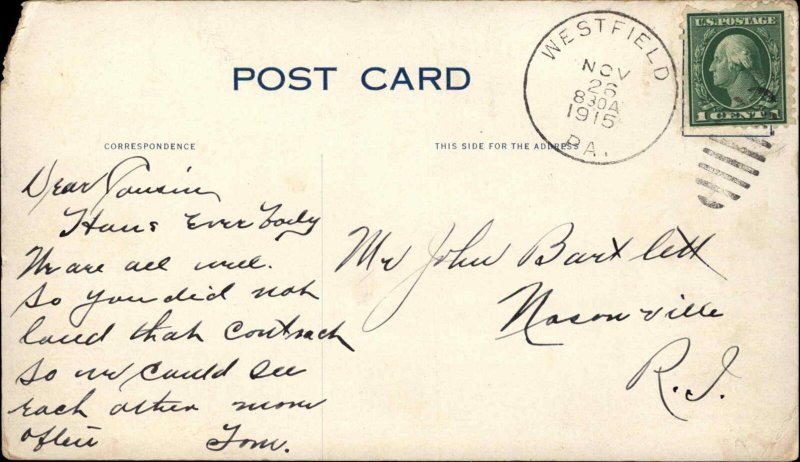 POST CARD
WESTFIELD
NOV
26
830A
1915
PA.
U.S. POSTAGE
1 CENT 1
CORRESPONDENCE
THIS SIDE FOR THE ADDRESS
Dear Cousin
Hows Everbody
We are all well.
So you did not
land that contrach
so we could see
each other more
often Tom.
Mr John Bartlett
Nasonville
R.I.